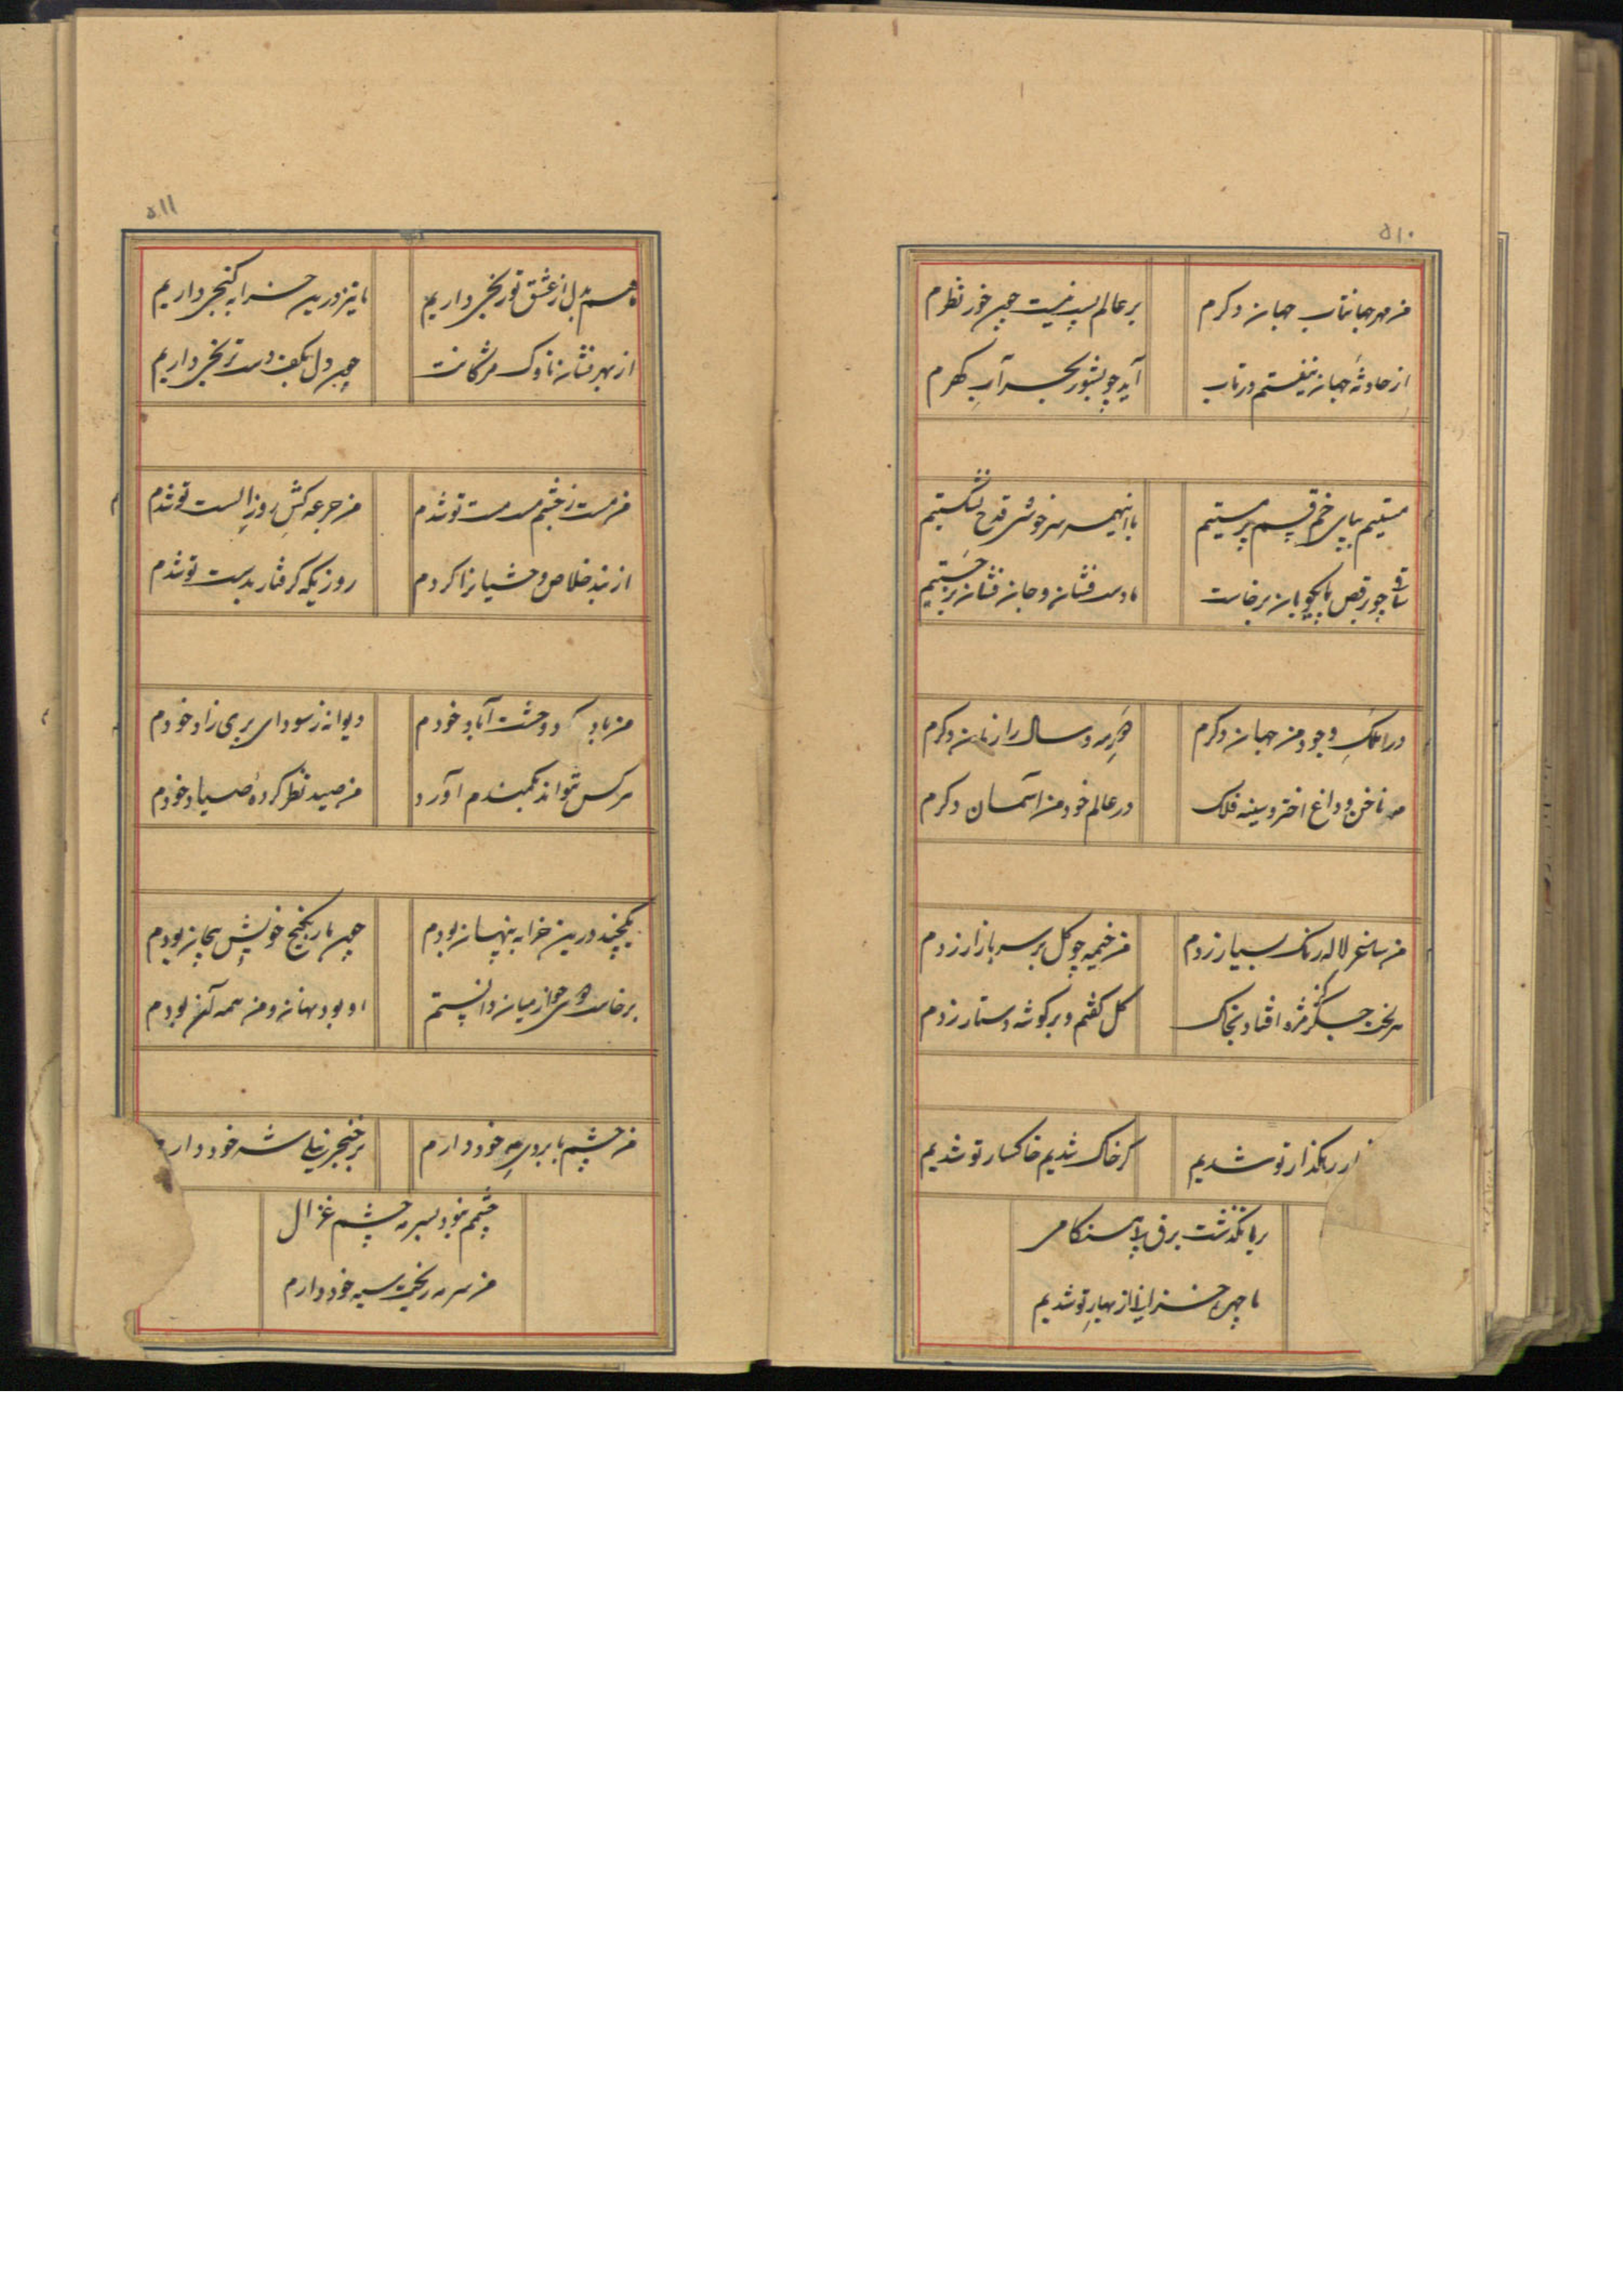 ۵۱۰
من مهر جهانتاب جهان دکرم
بر عالم پست نیست چون خور نظرم
از حادثهٔ جهان نیفتم در تاب
آید چو بشور بحر آب کهرم
مستیم بپای خم قسم پرستیم
با اینهمه سرخوشی قدح نشکستیم
ساقی چو برقص پایکوبان برخاست
ما دست فشان و جان فشان برجستیم
در ملک وجود من جهان دکرم
هر مه و سال را زمان دکرم
مه ناخن و داغ اختر و سینه فلک
در عالم خود من آسمان دکرم
من ساغر لاله رنک بسیار زدم
من خیمه چو کل بر سر بازار زدم
هر لخت جکر کز مژه افتاد بخاک
کل کفتم و بر کوشه دستار زدم
ار رهکذار تو شدیم
کر خاک شدیم خاکسار تو شدیم
بر ما نکذشت برق
ما چهره خزانی از بهار تو شدیم
۵۱۱
هم بدل از عشق تو رنجی داریم
ما نیز درین خرابه کنجی داریم
از بهر نشان ناوک مژکانت
چون دل بکف دست ترنجی داریم
من مست ز چشم مست مست تو شدم
من جرعه کش روز الست تو شدم
از بند خلاص وحشیانرا کردم
روزیکه کرفتار بدست تو شدم
من باد د وحشت آباد خودم
دیوانه ز سودای پری زاد خودم
هرکس نتواند بکمندم آورد
من صید نظر کردهٔ صیاد خودم
یکچند درین خرابه پنهان بودم
چون مار بکنج خویش پیچان بودم
برخاست چو از میان دانستم
او بود همان و من همه آن بودم
من چشم بابروی مه خود دارم
بر خنجر شه خود دارم
چشمم نبود بسرمه چشم غزال
من سرمه ز بخت سیه خود دارم